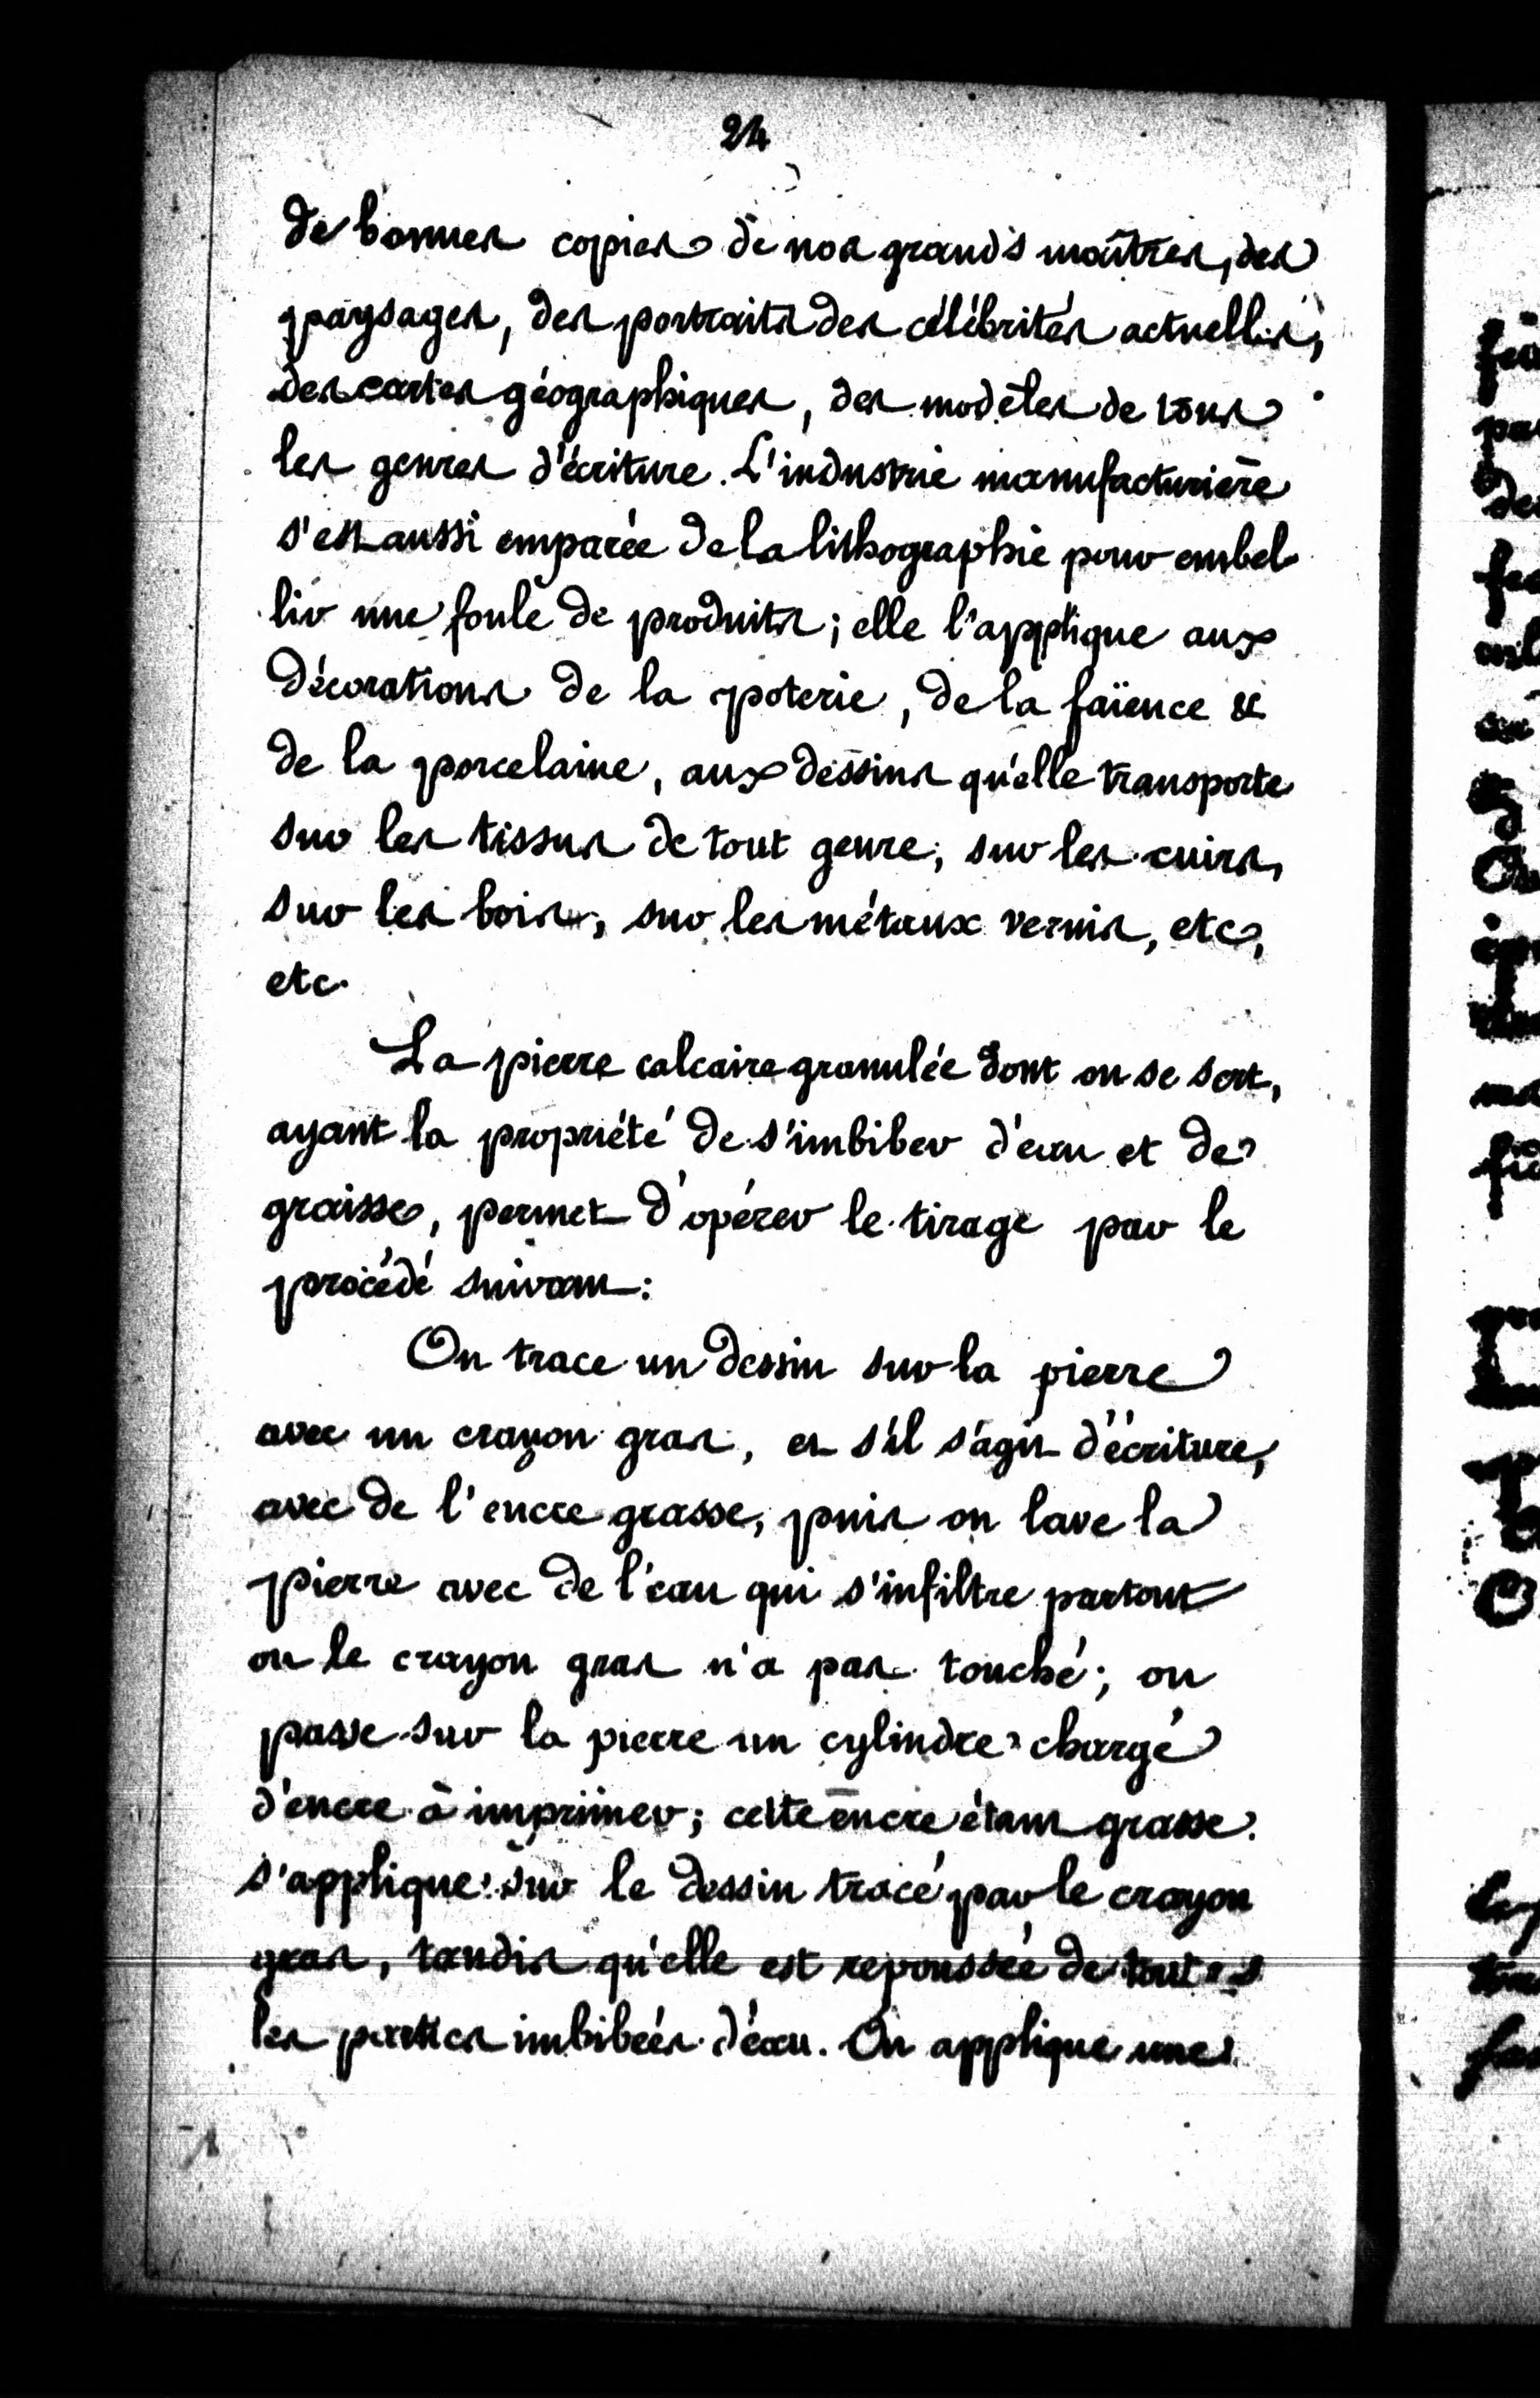 24
de bonnes copies de nos grands maîtres, des
paysages, des portraits des célébrités actuelles,
des cartes géographiques, des modèles de tous
les genres d'écriture. L'industrie manufacturière
s'est aussi emparée de la lithographie pour embel
lir une foule de produits; elle l'applique aux
décorations de la poterie, de la faïence &
de la porcelaine, aux dessins qu'elle transporte
sur les tissus de tout genre, sur les cuirs,
sur les bois, sur les métaux vernis, etc,
etc.
La pierre calcaire granulée dont on se sert,
ayant la propriété de s'imbiber d'eau et de
graisse, permet d'opérer le tirage par le
procédé suivant:
On trace un dessin sur la pierre
avec un crayon gras, et s'il s'agit d'écriture,
avec de l'encre grasse, puis on lave la
pierre avec de l'eau qui s'infiltre partout
ou le crayon gras n'a pas touché; on
passe sur la pierre un cylindre chargé
d'encre à imprimer; cette encre étant grasse
s'applique sur le dessin tracé par le crayon
gras, tandis qu'elle est repoussée de toutes
les parties imbibées d'eau. On applique une